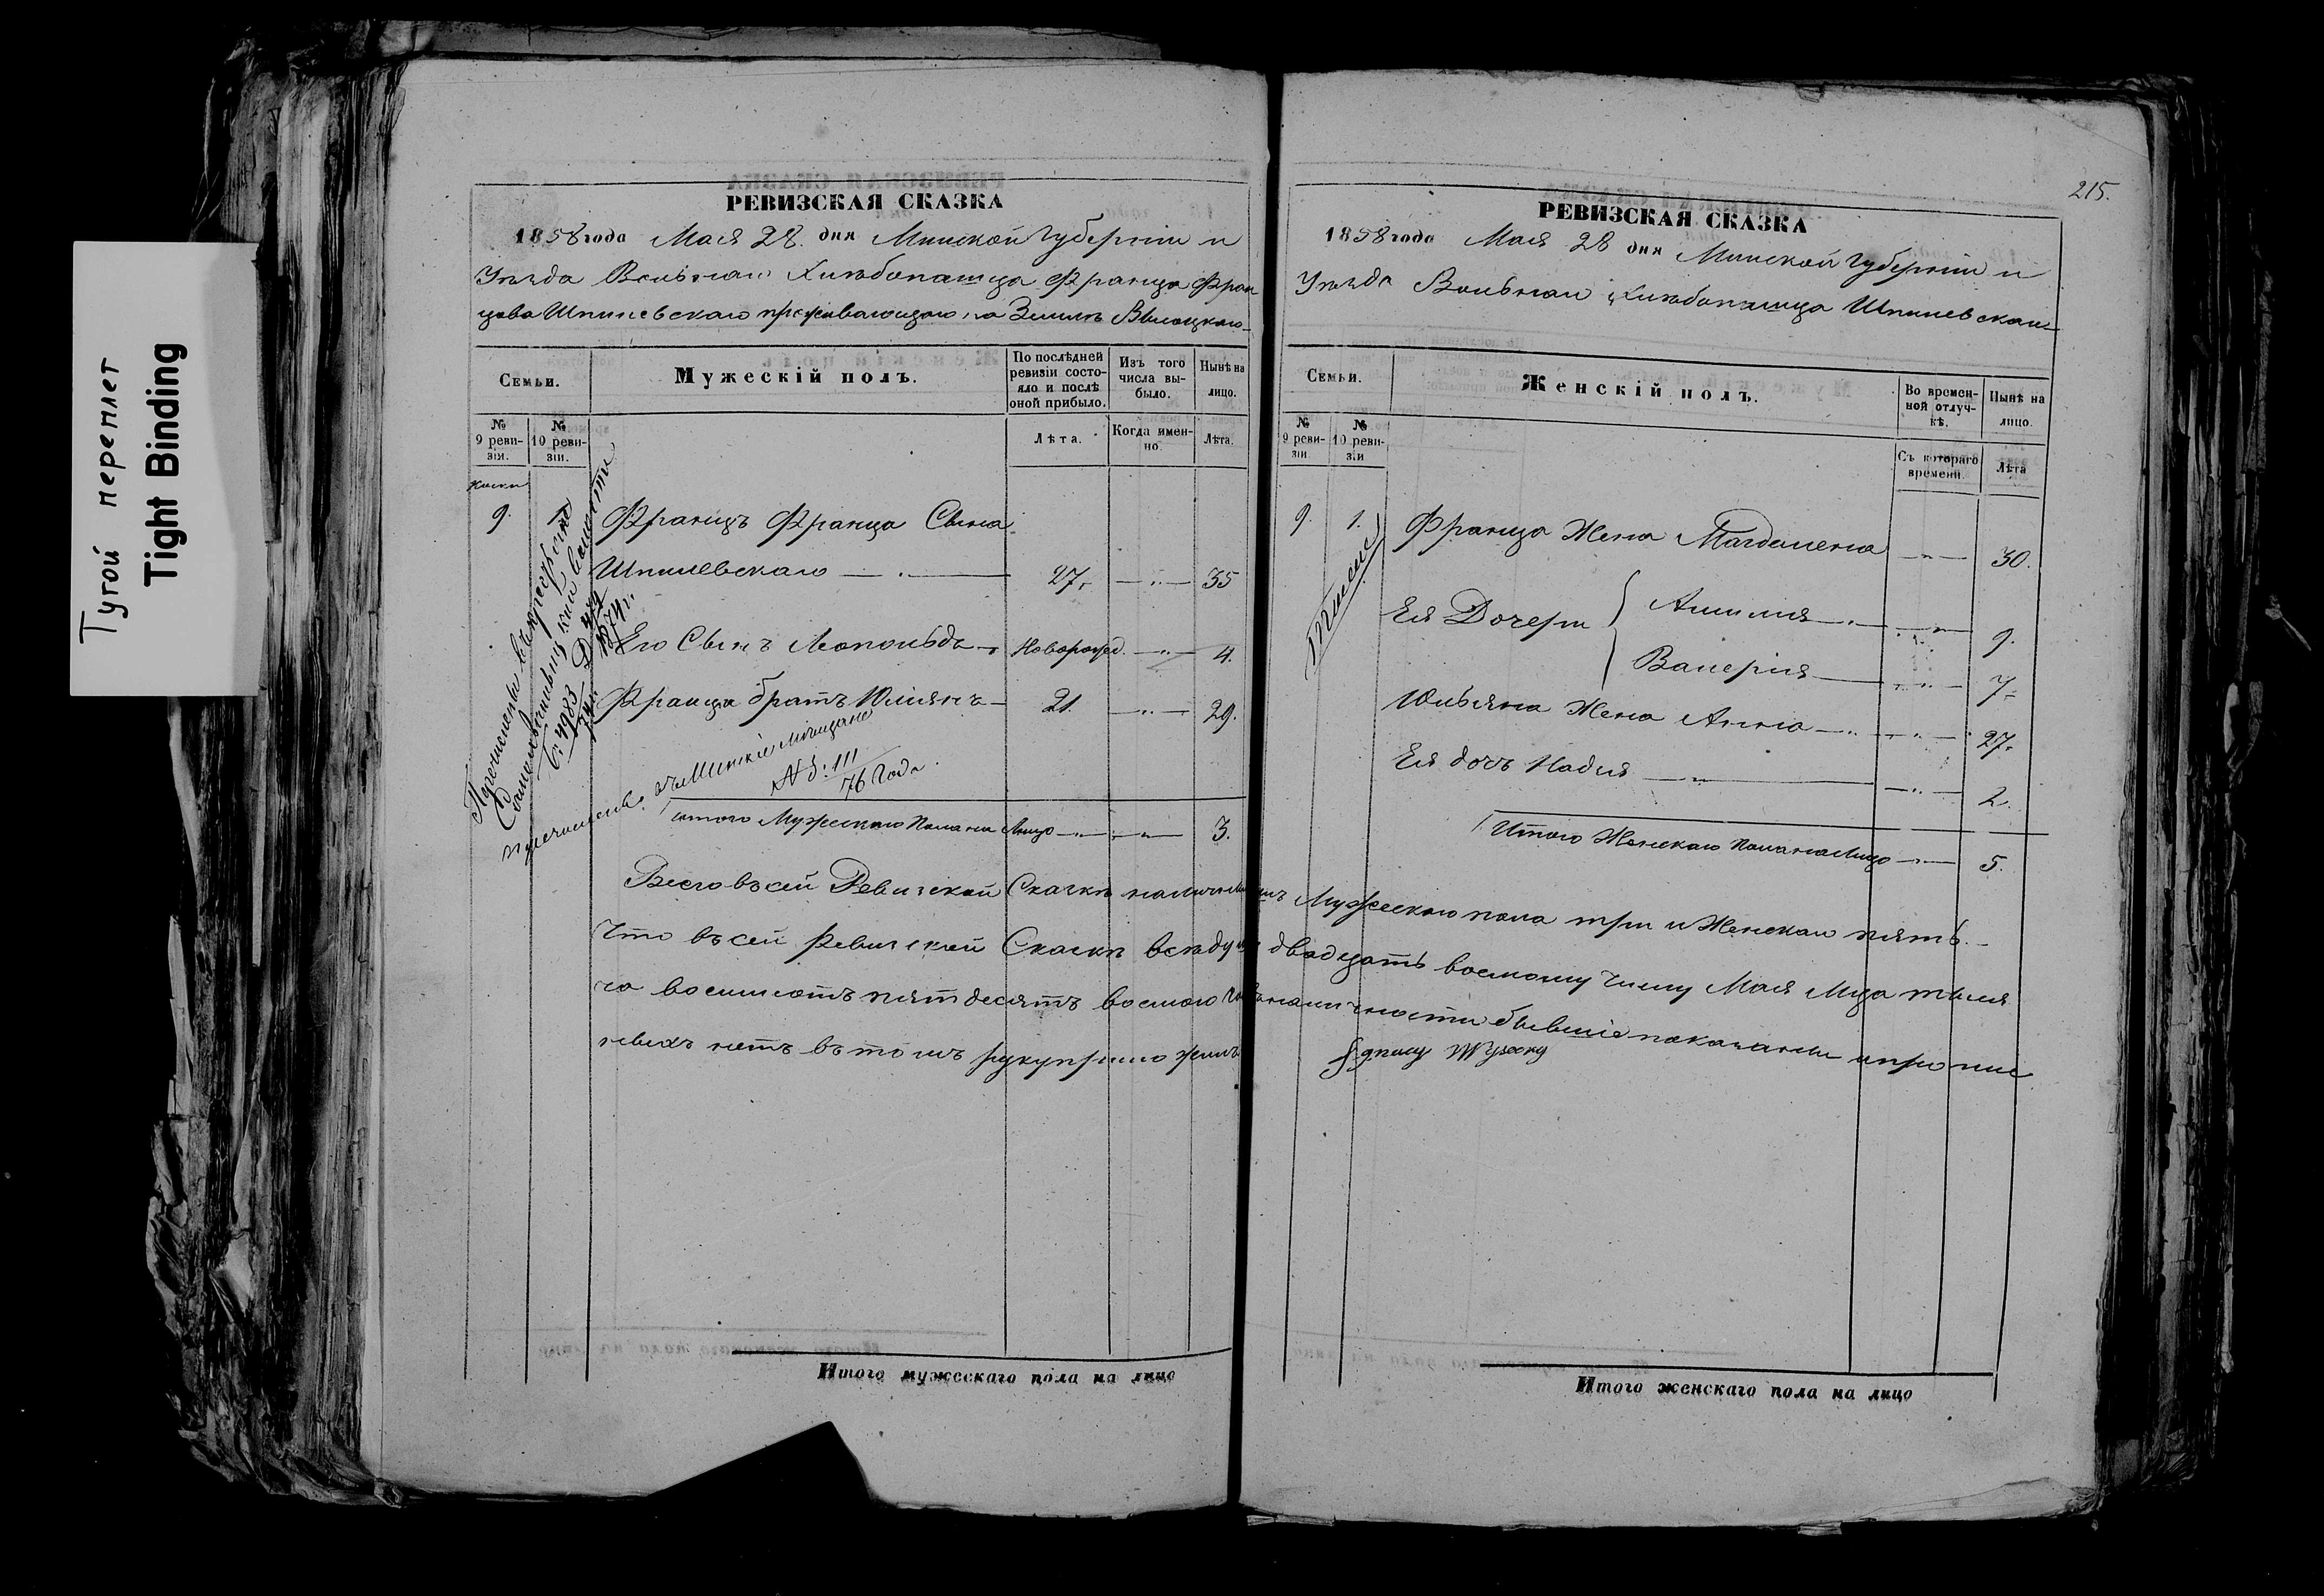 Тугой переплет
Tight Binding
РЕВИЗСКАЯ СКАЗКА
1858 года Мая 28. дня Минской Губерніи и
Уѣзда Вольнаго Хлѣбопашца Франца Фран
цова Шпилевскаго проживающаго на Землѣ
Семьи.
Мужескій полъ.
По послѣдней ревизіи состояло и послѣ оной прибыло.
Изъ того числа выбыло.
Нынѣ на лицо.
№ 9 ревизіи.
№ 10 ревизіи.
Лѣта.
Когда именно.
Лѣта.
9. 1. Францъ Франца Сынъ
Шпилевскаго — 27. — " — 35
Его Сынъ Леопольдъ — Новорожд. — " — 4.
Франца братъ Юліянъ — 21. — " — 29.
Минскіе мещане
№ 111
76 Года.
Итого Мужескаго Пола на Лицо — " — 3.
215.
РЕВИЗСКАЯ СКАЗКА
1858 года Мая 28 дня Минской Губерніи и
Уѣзда Вольнаго Хлѣбопашца Шпилевскаго
Семьи.
Женскій полъ.
Во временной отлучкѣ.
Нынѣ на лицо.
№ 9 ревизіи
№ 10 ревизіи
Съ котораго времени.
Лѣта
9. 1. Франца Жена Магдалена — " — 30.
Ея Дочери Амилія — " — 9.
Валерія — " — 7.
Юльяна Жена Анна — " — 27.
Ея дочь Надія — " — 2.
Итого Женскаго Пола на Лицо — " — 5.
Всего въ сей Ревизской Сказкѣ наличныхъ Мужескаго пола три и Женскаго пять.
Что въ сей Ревизской Сказкѣ всѣ двадцать восьмому Числу Мая Мца тысяча
восемьсотъ пятдесятъ восмого года на личности бывшіе показаны и пропис
ныхъ нетъ въ томъ руку приложилъ
Итого мужескаго пола на лицо
Итого женскаго пола на лицо